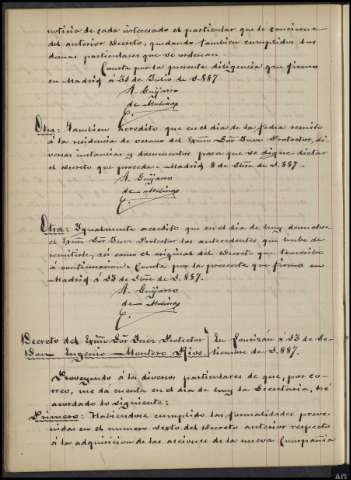 noticia de cada interesado el particular que le concierne
del anterior Decreto, quedando tambien cumplidos los
demas particulares que se ordenan.
Consta por la presente diligencia que firmo
en Madrid á 31 de Julio de 1.887.
A. Guijarro
de Molina
Otra: Tambien acredito que en el dia de la fecha remito
á la residencia de verano del Exmo Sor Juez Protector, di-
versas instancias y documentos para que se digne dictar
el Decreto que procede. Madrid 8 de Stbre de 1.887.
A. Guijarro
de Molina
Otra: Igualmente acredito que en el dia de hoy devuelve
el Exmo Sor Juez Protector los antecedentes que hube de
remitirle, asi como el original del Decreto que transcribo
á continuacion. Consta por la presente que firmo en
Madrid á 23 de Stbre de 1.887.
A. Guijarro
de Molina
Decreto del Exmo Sor Juez Protector En Lourizán á 23 de Se-
Don Eugenio Montero Rios tiembre de 1.887.
Proveyendo á los diversos particulares de que, por co-
rreo, me dá cuenta en el dia de hoy la Secretaría, hé
acordado lo siguiente:
Primero: Habiendose cumplido las formalidades preve-
nidas en el numero sexto del Decreto anterior respecto
á la adquisicion de las acciones de la nueva Compañia